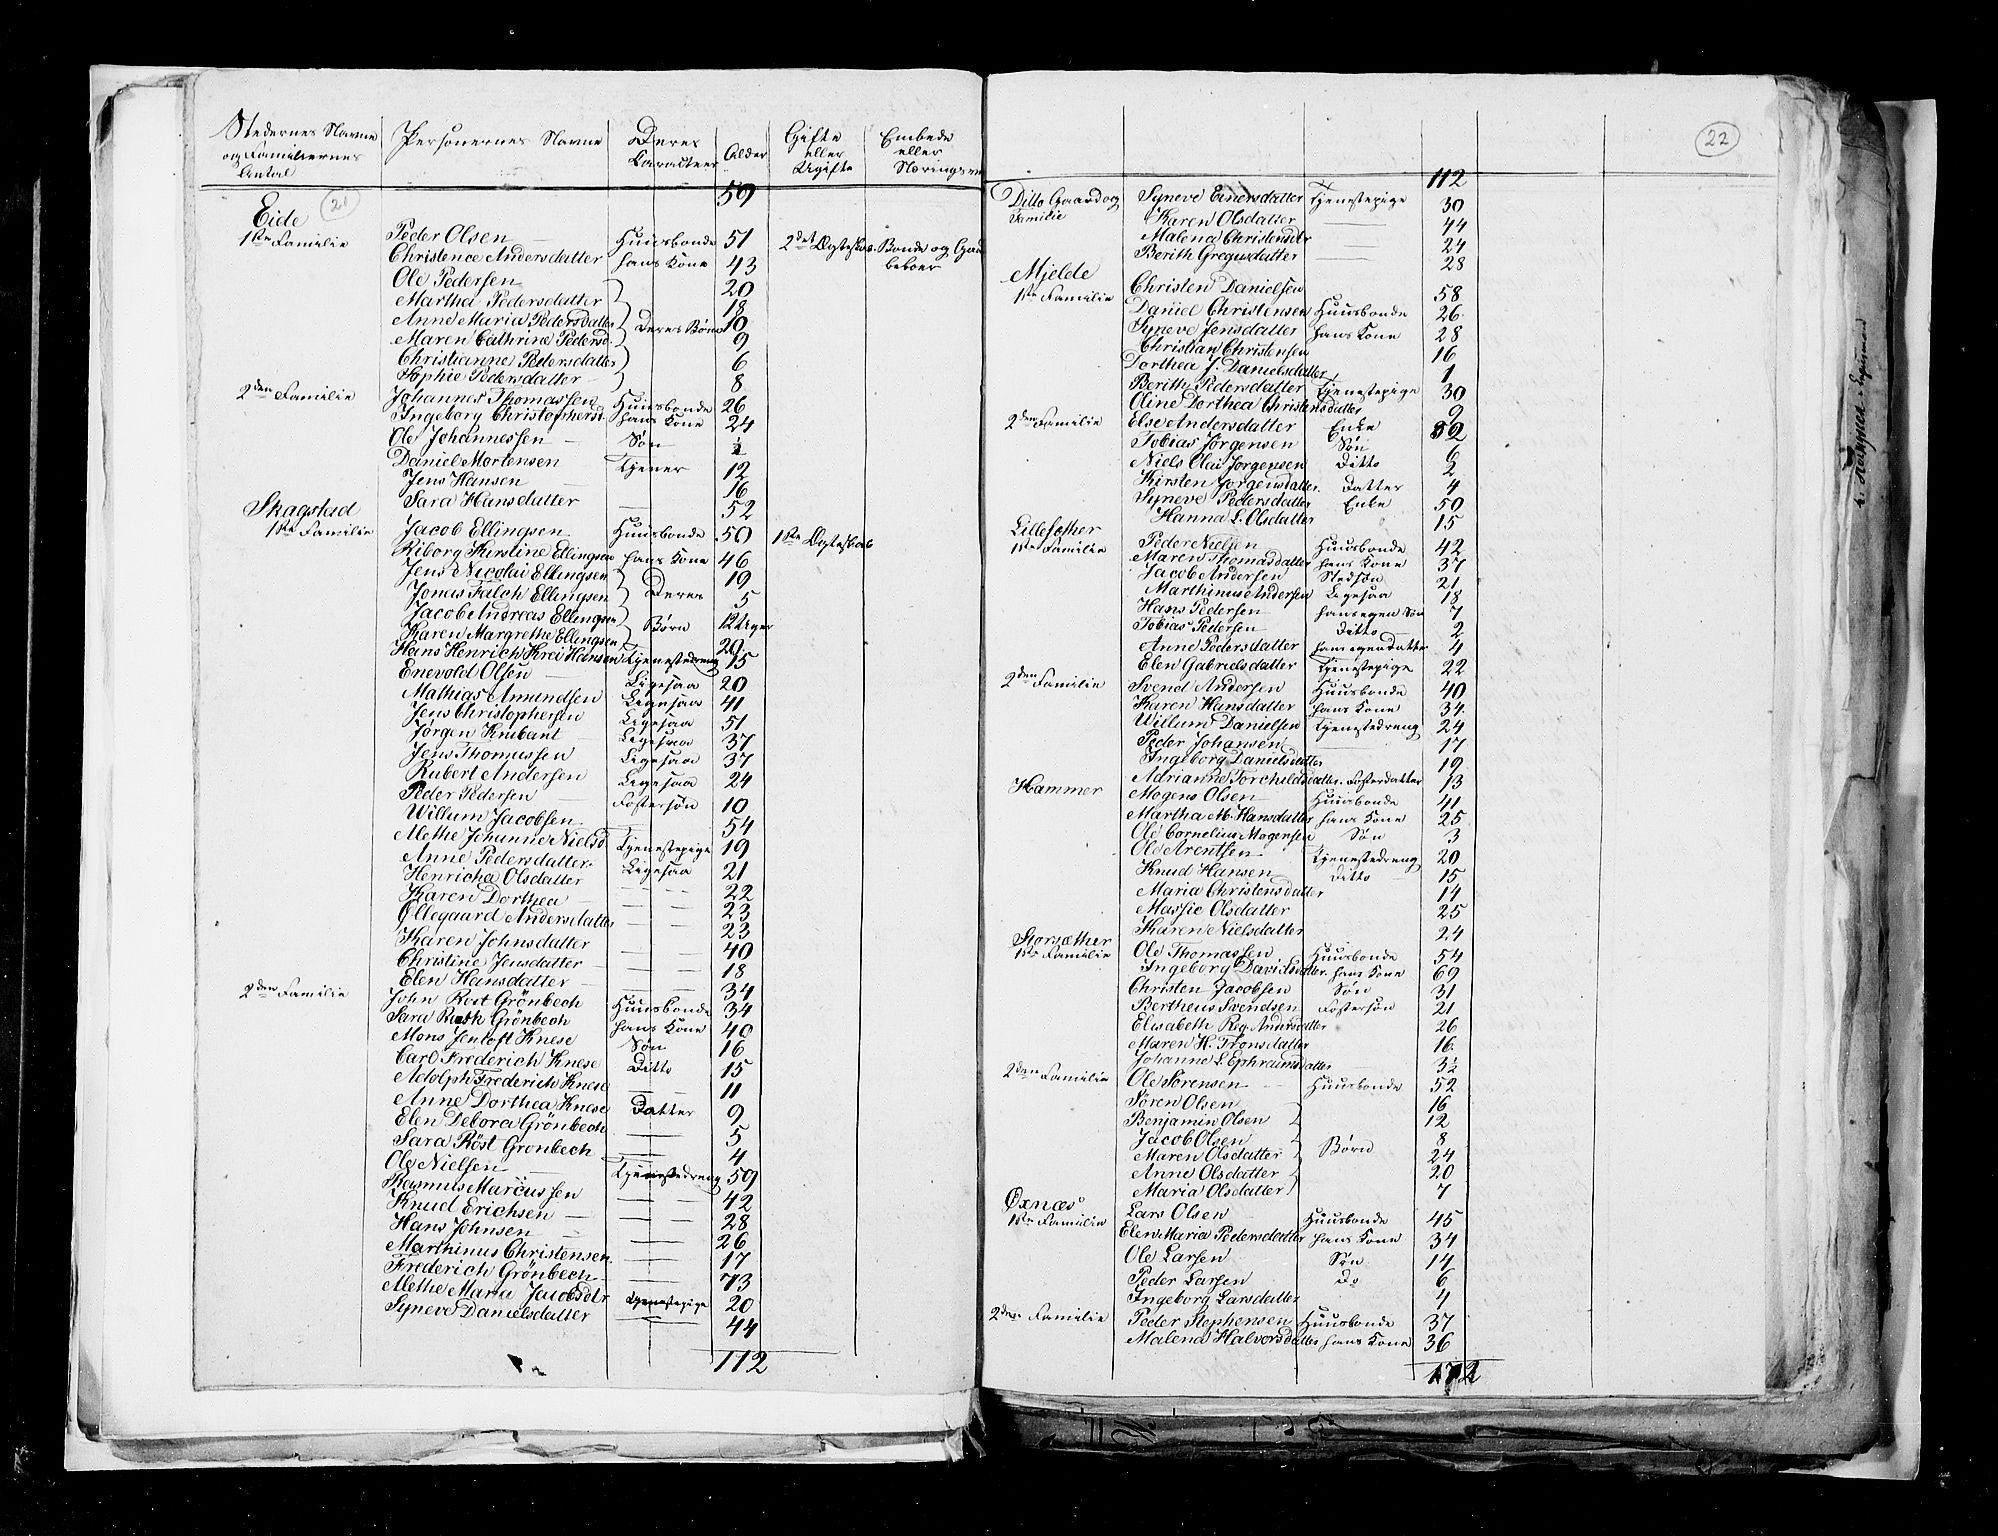 Stedernes Navne og Familiernes Antal | Personernes Navne | Deres Caracteer | Alder | Gifte eller Ugifte | Embede eller Nærings
59
Eide 21
1ste Familie Peder Olsen Huusbonde 51 2det Ægteskab Bonde og Gaardbeboer
Christence Andersdatter hans Kone 43
Ole Pedersen 20
Martha Pedersdatter 18
Anne Maria Pedersdatter Deres Børn 10
Maren Cathrine Pedersd. 9
Christianne Pedersdatter 6
Sophie Pedersdatter 8
2den Familie Johannes Thomassen Huusbonde 26
Ingeborg Christophersd. hans Kone 24
Ole Johannessen Søn ½
Daniel Mortensen Tjener 12
Jens Hansen 16
Sara Hansdatter 52
Skagstad
1ste Familie Jacob Ellingsen Huusbonde 50 1ste Ægteskab
Riborg Kirstine Ellingsen hans Kone 46
Jens Nicolai Ellingsen 19
Jonas Falch Ellingsen Deres 5
Jacob Andreas Ellingsen 12 Uger
Karen Margrethe Ellingsen Børn 20
Hans Henrich Krei Hansen Tjenestedreng 15
Enevold Olsen
Mathias Amundsen Ligesaa 20
Jens Christophersen Ligesaa 41
Jørgen Knibant Ligesaa 51
Jens Thomassen Ligesaa 37
Rubert Andersen Ligesaa 37
Peder Pedersen Ligesaa 24
Willum Jacobsen Fostersøn 10
54
Methe Johanne Nielsd. Tjenestepige 19
Anne Pedersdatter Ligesaa 21
Henricha Olsdatter 22
Karen Dorthea 23
Øllegaard Andersdatter 23
Karen Johnsdatter 40
Christine Jensdatter 18
Elen Hansdatter 34
2den Familie John Rost Grönbech Huusbonde 34
Sara Rosk Grönbech hans Kone 40
Mons Jentoft Knese Søn 16
Carl Frederich Knese Ditto 15
Adolph Frederich Knese 11
Anne Dorthea Knese Datter 9
Elen Debora Grönbech 5
Sara Röst Gronbech 4
Ole Nielsen Tjenestedreng 59
Rasmus Marcussen 42
Knud Erichsen 28
Hans Johnsen 26
Marthinus Christensen 17
Frederich Grönbech 73
Methe Maria Jacobsdtr Tjenestepige 20
Syneve Danielsdatter 44
112
22
112
Ditto Gaard og Familie Syneve Einersdatter Tjenestepige 30
Karen Olsdatter 44
Malena Christensdtr 24
Berith Gregusdatter 28
Mjelde
1ste Familie Christen Danielsen 58
Daniel Christensen Huusbonde 26
Syneve Jensdatter hans Kone 28
Christian Christensen 16
Dorthea J. Danielsdatter 1
Berith Pedersdatter Tjenestepige 30
Oline Dorthea Christensdatter 9
2den Familie Else Andersdatter Enke 52
Tobias Jørgensen Søn 6
Niels Olai Jorgensen Ditto 2
Kirsten Jorgensdatter Datter 4
Syneve Pedersdatter Enke 50
Hanna L. Olsdatter 15
Lillesæther
1ste Familie Peder Nielsen Huusbonde 42
Maren Thomasdatter hans Kone 37
Jacob Andersen Stedsøn 21
Marthinus Andersen Ligesaa 18
Hans Pedersen hans egen Søn 7
Tobias Pedersen Ditto 2
Anne Pedersdatter hans egen datter 4
Elen Gabrielsdatter Tjenestepige 22
2den Familie Svend Andersen Huusbonde 40
Karen Hansdatter hans Kone 34
Willum Danielsen Tjenestedreng 24
Peder Johansen 17
Ingeborg Danielsdatter 19
Adrianne Torchildsdatter Fosterdatter 13
Hammer Mogens Olsen Huusbonde 41
Martha M. Hansdatter hans Kone 25
Ole Cornelius Mogensen Søn 3
Ole Arentsen Tjenestedreng 20
Knud Hansen Ditto 15
Maria Christensdatter 14
Massie Olsdatter 25
Karen Nielsdatter 24
Storsæther
1ste Familie Ole Thomassen Huusbonde 54
Ingeborg Davidsdatter hans Kone 69
Christen Jacobsen Søn 31
Bertheus Svendsen Fostersøn 21
Elisabeth Reg. Andersdatter 26
Maren H. Tronsdatter 16
Johanne L. Ephraimsdatter 3½
2den Familie Ole Sörensen Huusbonde 52
Sören Olsen 16
Benjamin Olsen 12
Jacob Olsen 8
Maren Olsdatter Børn 24
Anne Olsdatter 20
Maria Olsdatter 7
Øxnæs
1ste Familie Lars Olsen Huusbonde 45
Elen Maria Pedersdatter hans Kone 34
Ole Larsen Søn 14
Peder Larsen do 6
Ingeborg Larsdatter 4
2den Familie Peder Stephensen Huusbonde 37
Malena Halvorsdatter hans Kone 36
172